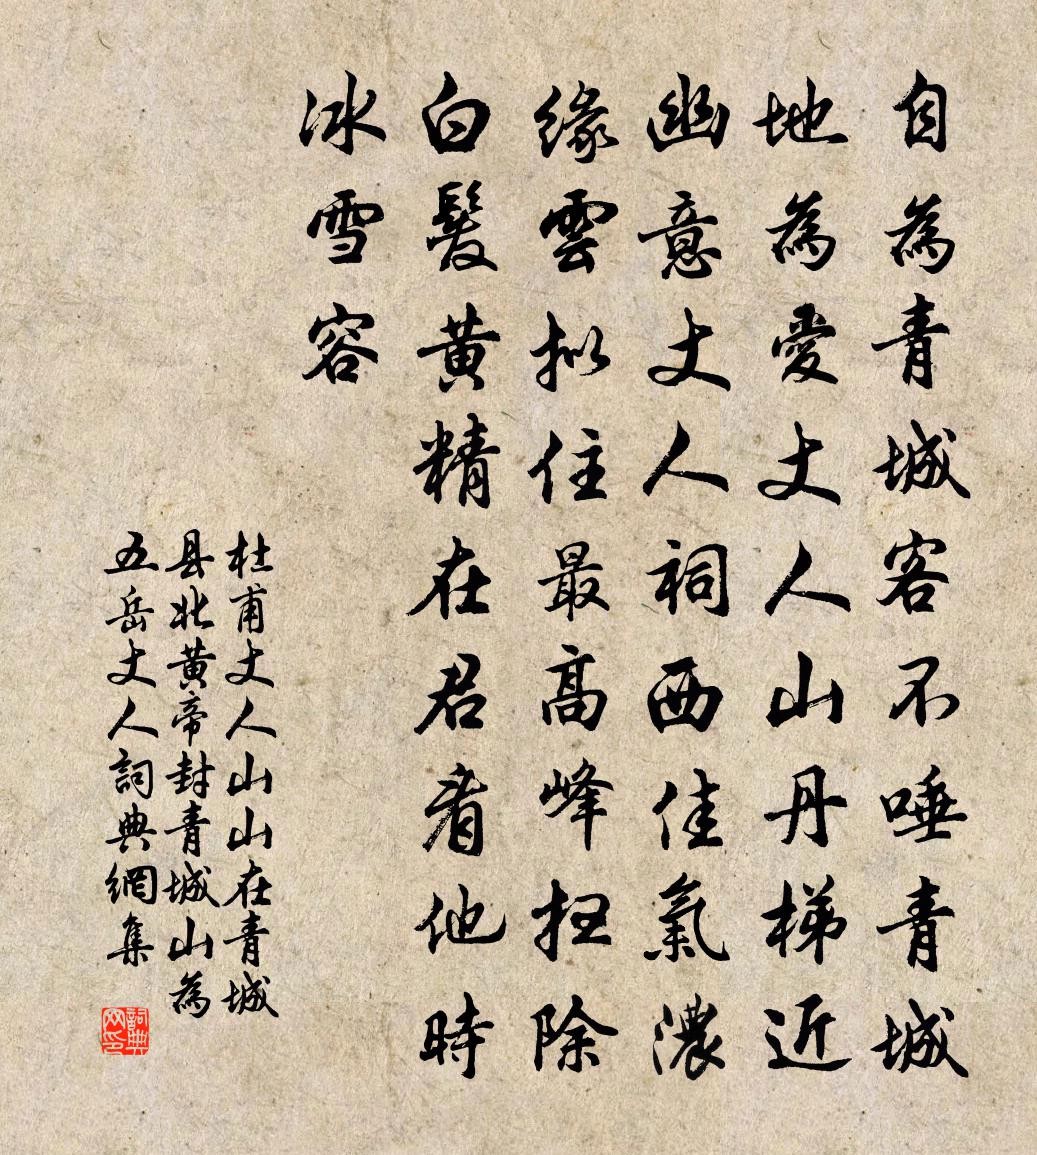 自為青城客不唾青城
地為愛丈人山丹梯近
幽意丈人祠西佳氣濃
緣雲拟住最高峰扫除
白髮黄精在君看他時
冰雪容
杜甫丈人山山在青城
县北黄帝封青城山為
五岳丈人詞典網集
詞典
网印